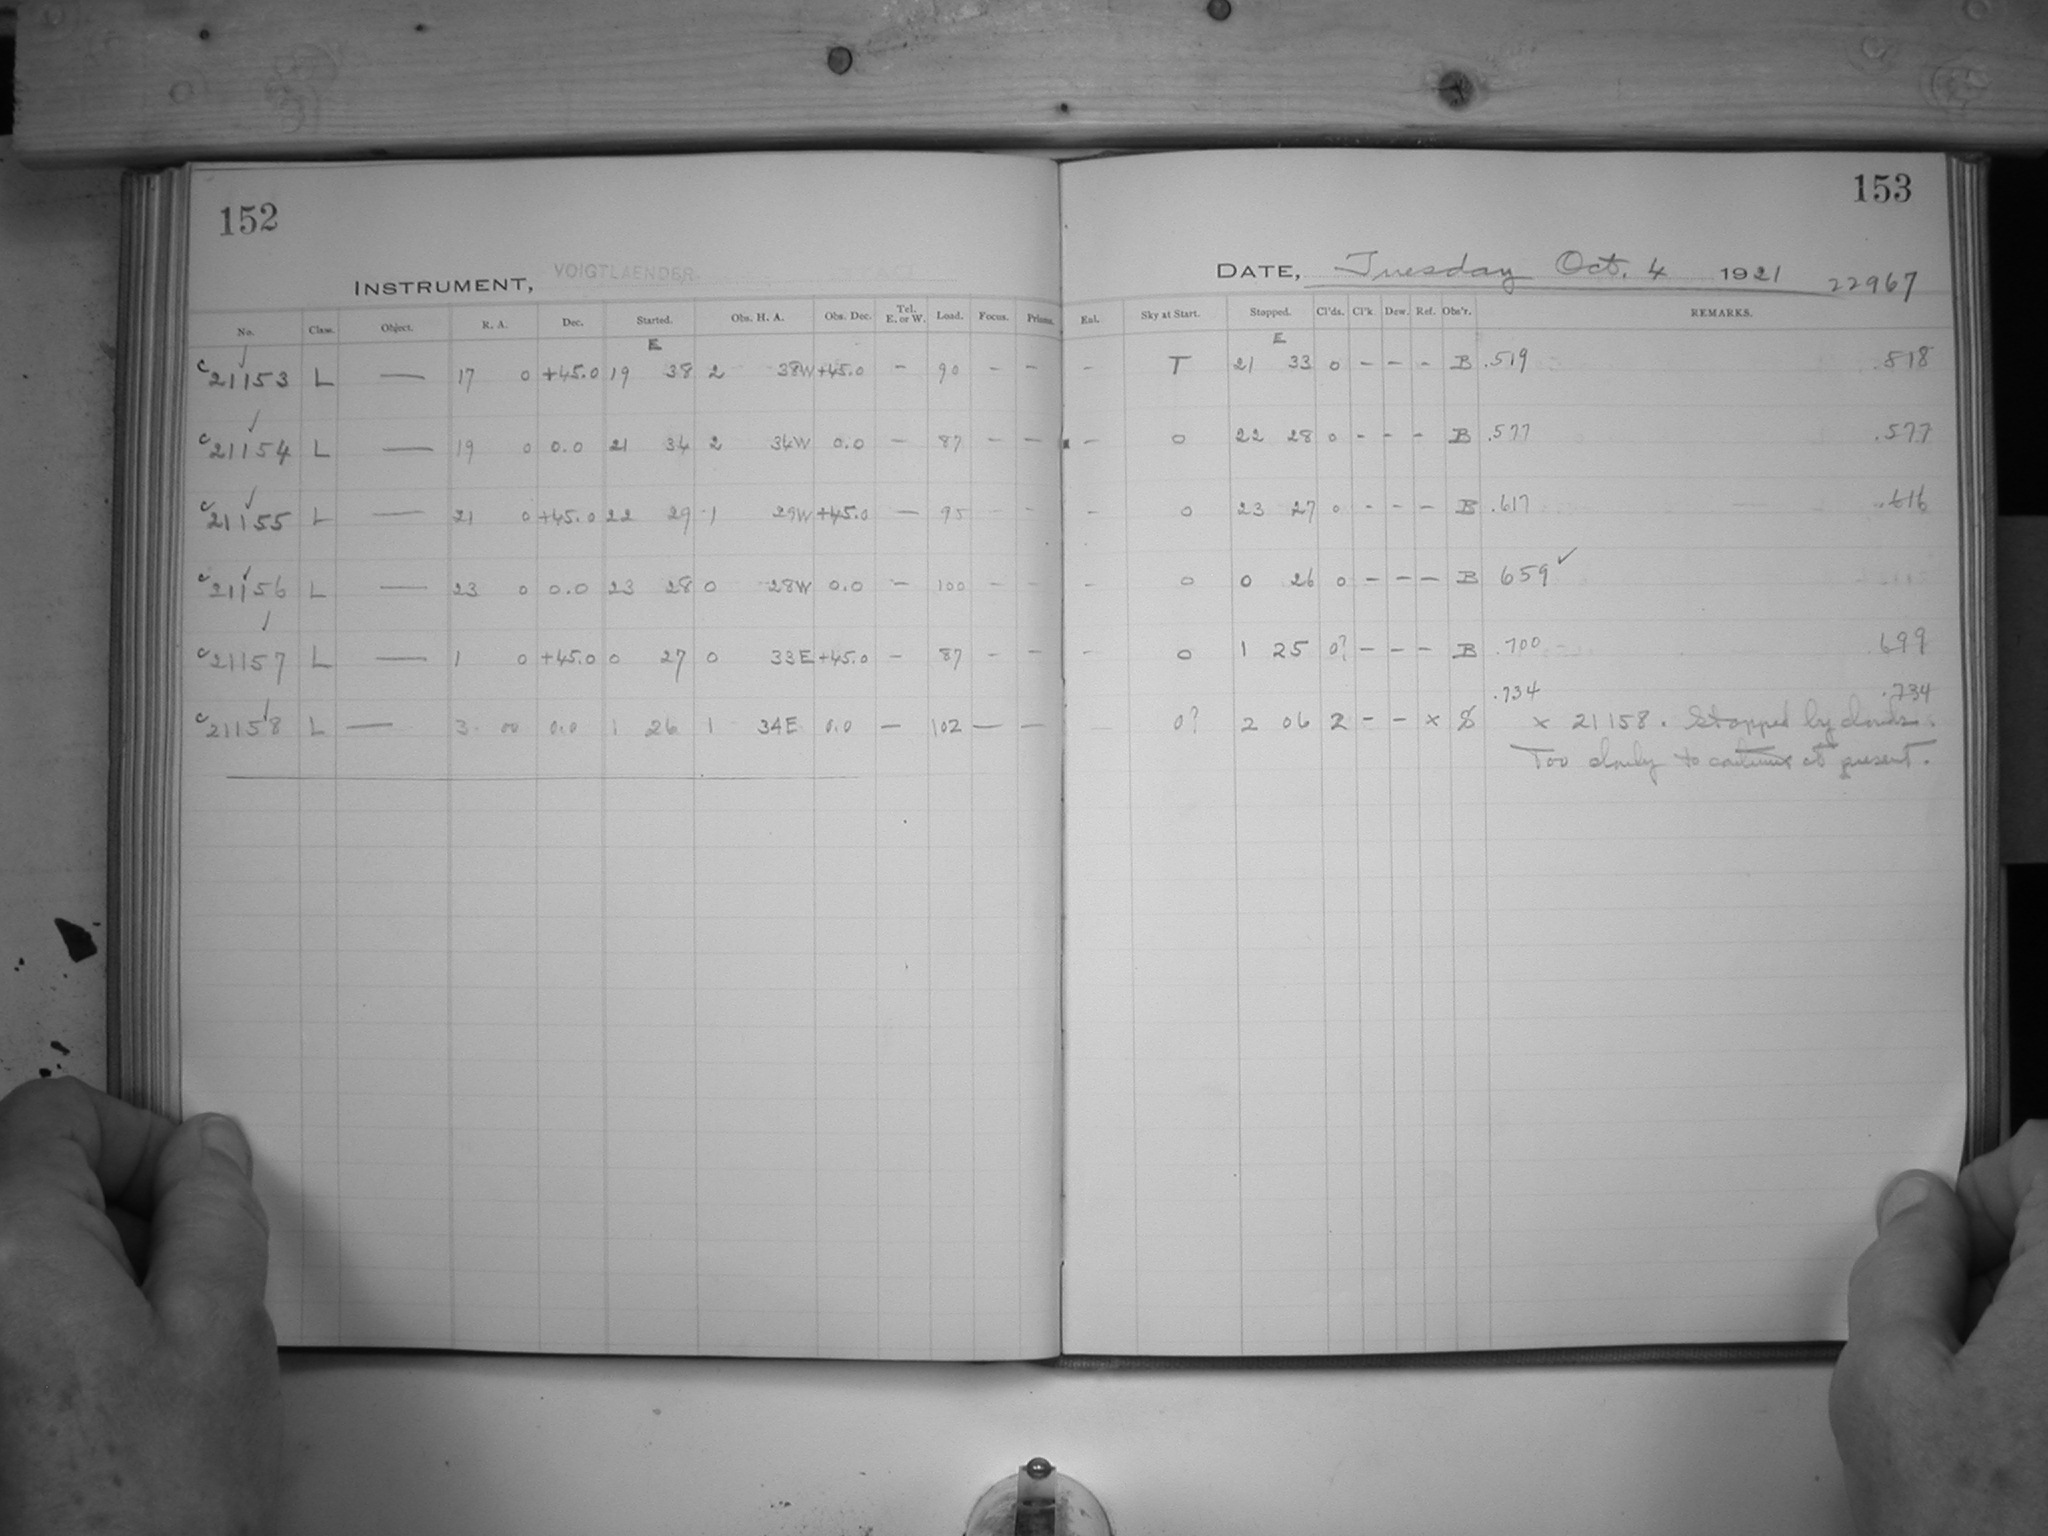 152
INSTRUMENT, VOIGTLAENDER
No. Class. Object. R. A. Dec. Started. Obs. H. A. Obs. Dec. Tel. E. or W. Load. Focus. Prisms.
E
c 21153 L — 17 0 +45.0 19 38 2 38W +45.0 - 90 - -
c 21154 L — 19 0 0.0 21 34 2 34W 0.0 - 87 - -
c 21155 L — 21 0 +45.0 22 29 1 29W +45.0 — 95 - -
c 21156 L — 23 0 0.0 23 28 0 28W 0.0 - 100 - -
c 21157 L — 1 0 +45.0 0 27 0 33E +45.0 - 87 - -
c 21158 L — 3 00 0.0 1 26 1 34E 0.0 — 102 — —
153
DATE, Tuesday Oct. 4 1921 22967
Enl. Sky at Start. Stopped. Cl'ds. Cl'k Dew. Ref. Obs'r. REMARKS.
E
- T 21 33 0 - - - B .519 .518
- 0 22 28 0 - - - B .577 .577
- 0 23 27 0 - - - B .617 .616
- 0 0 26 0 - - - B 659 ✓
- 0 1 25 0? - - - B .700 .699
.734 .734
0? 2 06 2 - - x S x 21158. Stopped by clouds.
Too cloudy to continue at present.